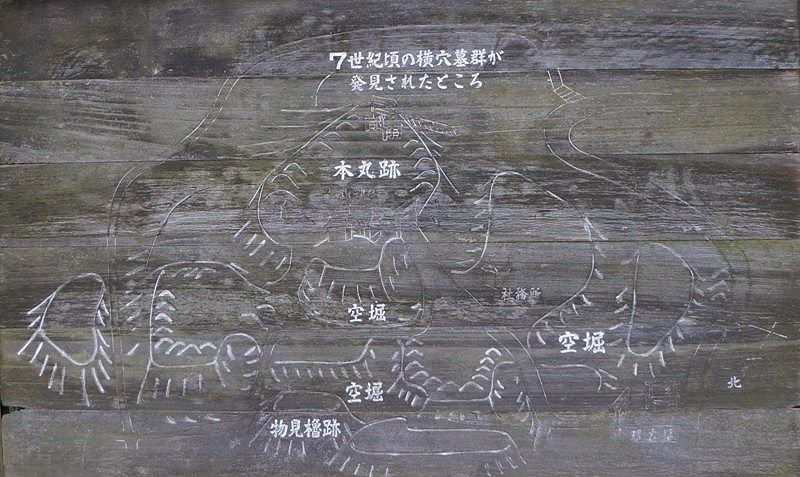 7世紀頃の横穴墓群が
発見されたところ
本丸跡
社務所
空堀
空堀
空堀
北
物見櫓跡